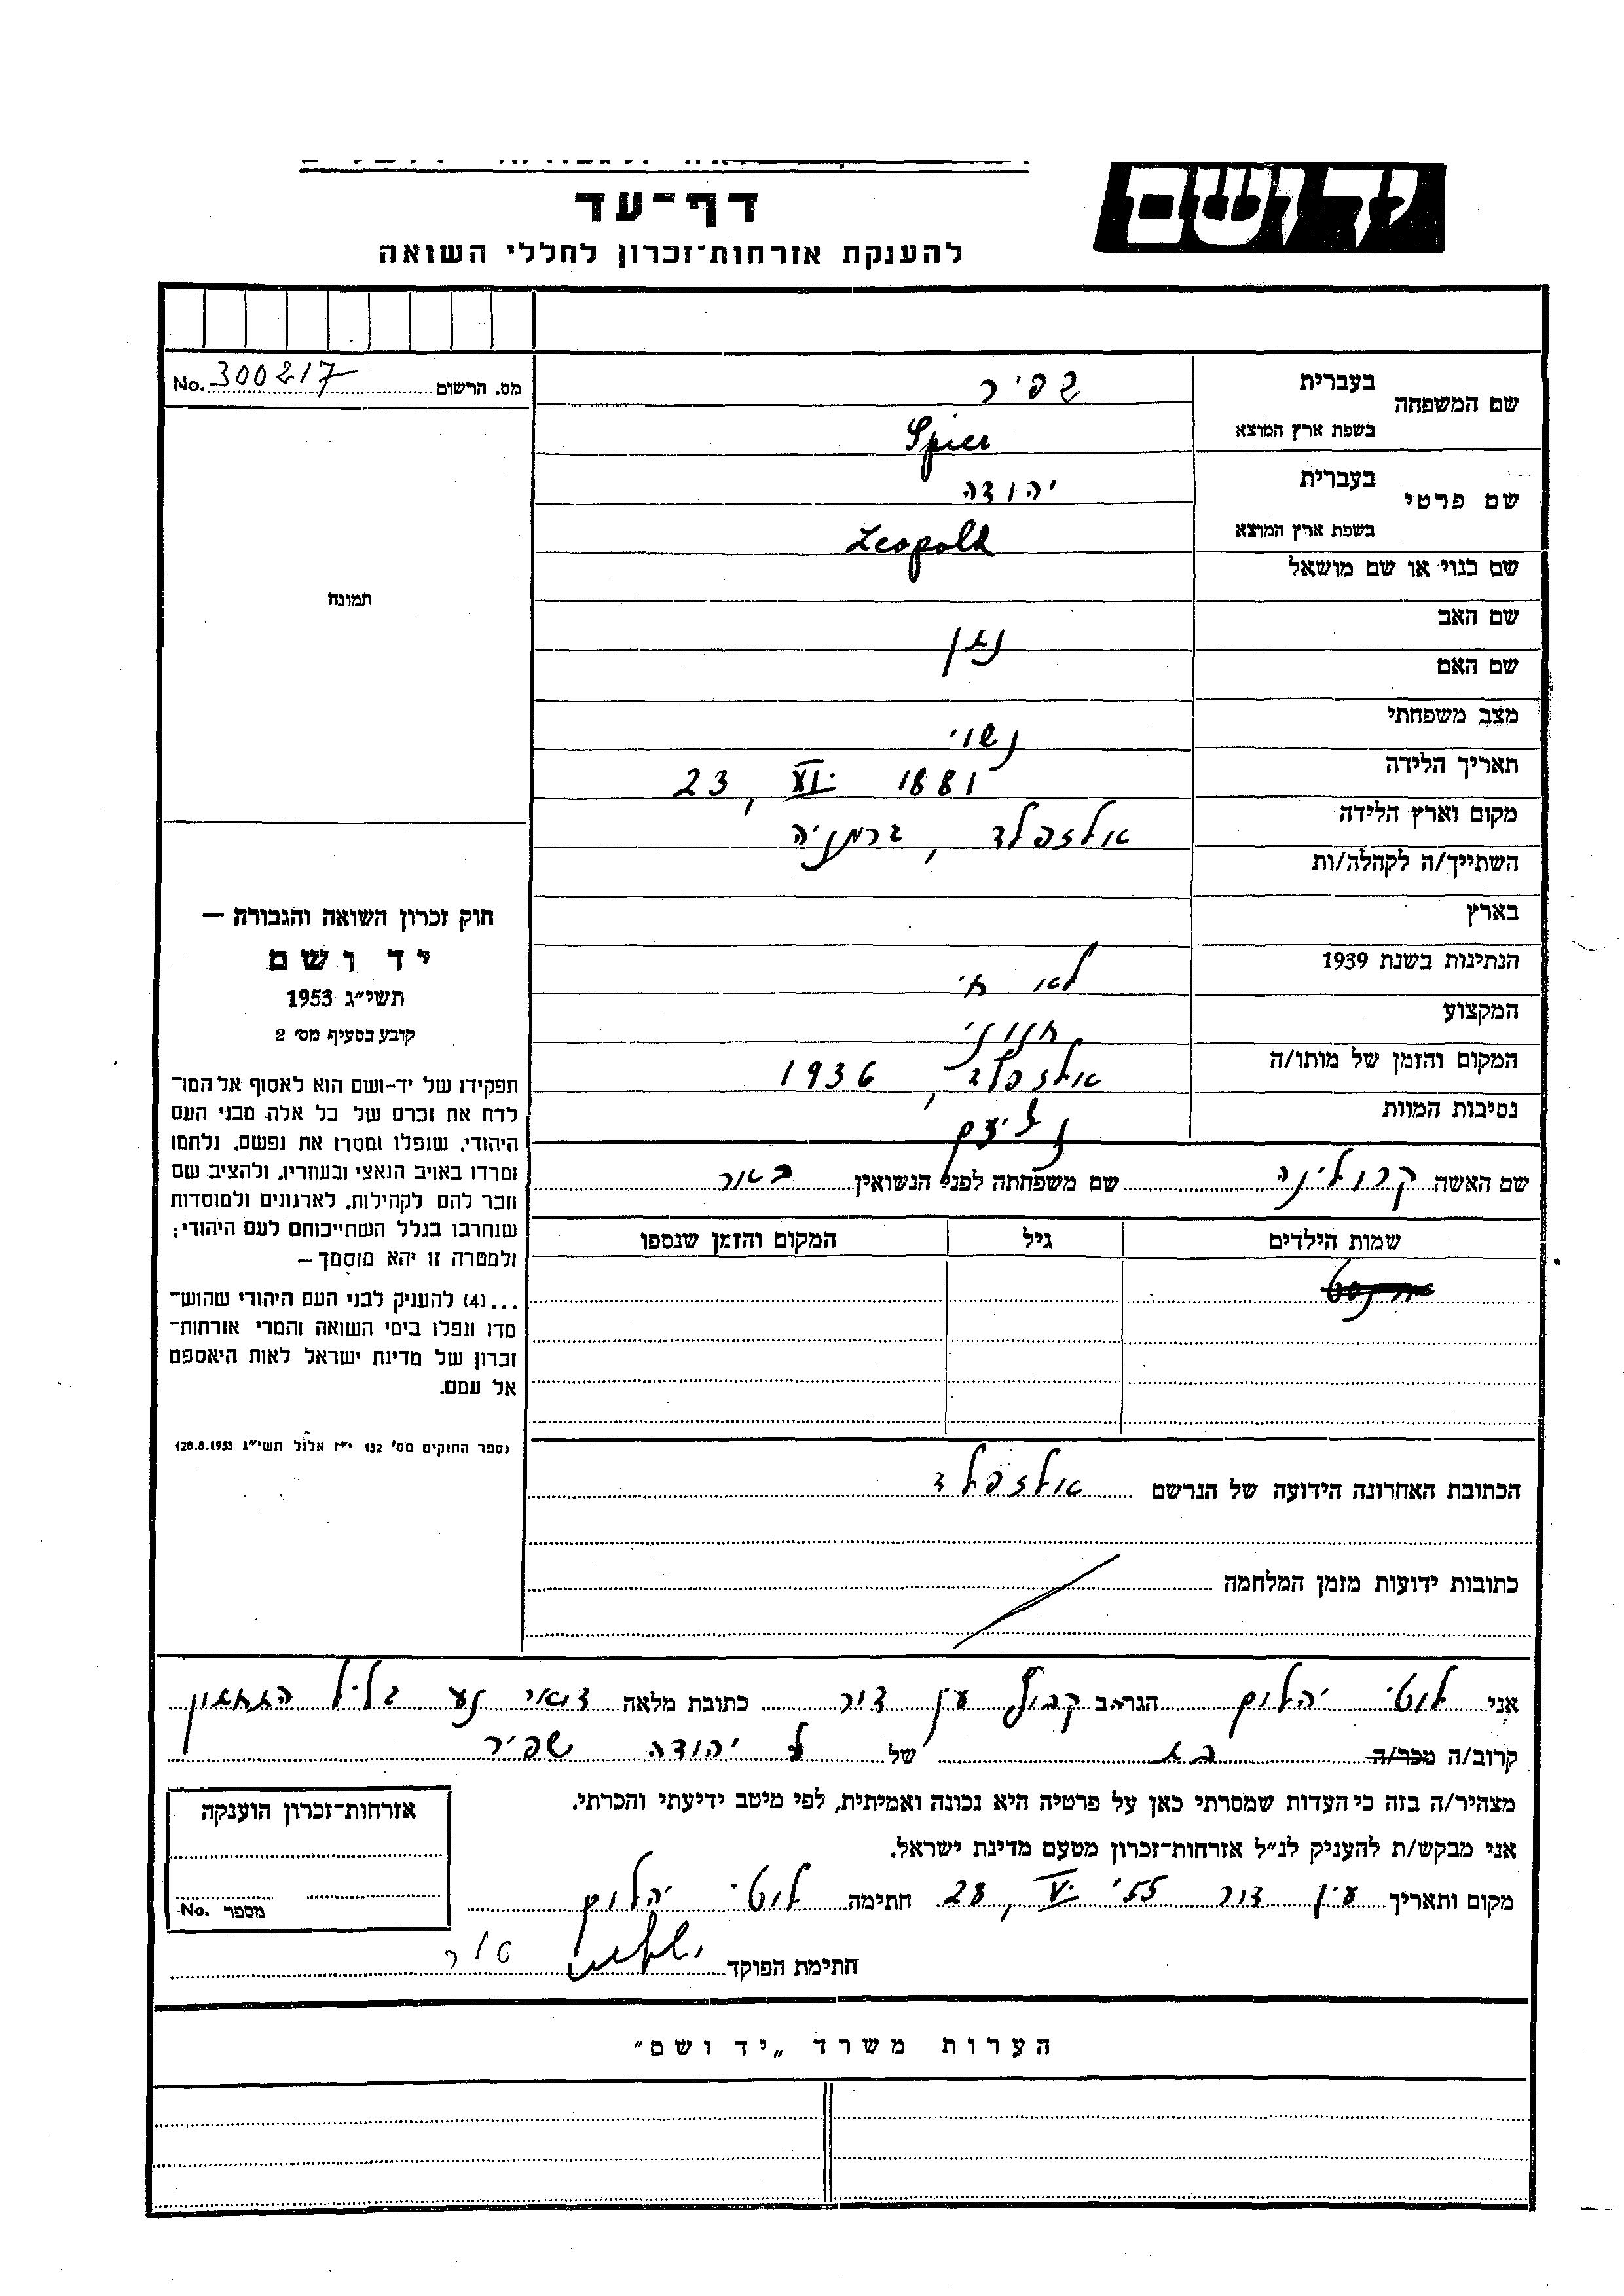 יד ושם
דף-עד
להענקת אזרחות-זכרון לחללי השואה
מס. הרשום 300217 No.
שם המשפחה
בעברית שפיר
בשפת ארץ המוצא Spier
שם פרטי
בעברית יהודה
בשפת ארץ המוצא Leopold
שם כנוי או שם מושאל
שם האב נתן
שם האם
מצב משפחתי נשוי
תאריך הלידה 23, VI 1881
מקום וארץ הלידה אלזפלד, גרמניה
השתייך/ה לקהלה/ות
בארץ
הנתינות בשנת 1939 לא חי
המקצוע חנוני
המקום והזמן של מותו/ה אלזפלד, 1936
נסיבות המוות
שם האשה קרולינה שם משפחתה לפני הנשואין באור
שמות הילדים גיל המקום והזמן שנספו
הכתובת האחרונה הידועה של הנרשם אלזפלד
כתובות ידועות מזמן המלחמה
תמונה
חוק זכרון השואה והגבורה —
יד ושם
תשי"ג 1953
קובע בסעיף מס' 2
תפקידו של יד-ושם הוא לאסוף אל המו-
לדת את זכרם של כל אלה מבני העם
היהודי, שנפלו ומסרו את נפשם, נלחמו
ומרדו באויב הנאצי ובעוזריו, ולהציב שם
וזכר להם לקהילות, לארגונים ולמוסדות
שנחרבו בגלל השתייכותם לעם היהודי;
ולמטרה זו יהא מוסמך —
...(4) להעניק לבני העם היהודי שהוש-
מדו ונפלו בימי השואה והמרי אזרחות-
זכרון של מדינת ישראל לאות היאספם
אל עמם.
(ספר החוקים מס' 132 י"ז אלול תשי"ג 28.8.1953)
אני לוטי יהלום הגר/ה ב קבוץ עין דור כתובת מלאה דואר נע גליל התחתון
קרוב/ה מכר/ה בת של יהודה שפיר
מצהיר/ה בזה כי העדות שמסרתי כאן על פרטיה היא נכונה ואמיתית, לפי מיטב ידיעתי והכרתי.
אני מבקש/ת להעניק לנ"ל אזרחות-זכרון מטעם מדינת ישראל.
מקום ותאריך עין דור 28, V 55' חתימה לוטי יהלום
חתימת הפוקד
אזרחות-זכרון הוענקה
מספר No.
הערות משרד „יד ושם"